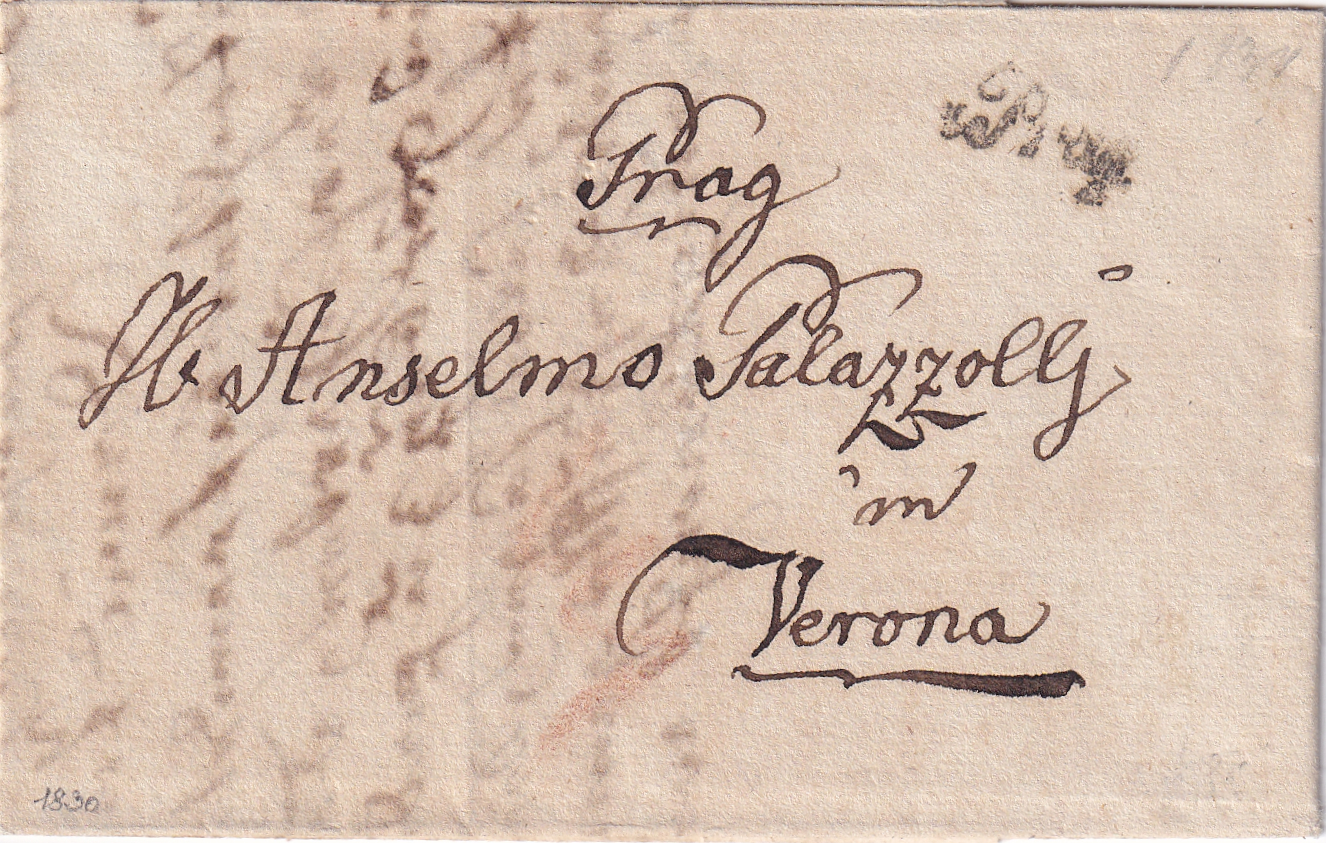 Prag
Prag
H Anselmo Palazzolli
in
Verona
1830